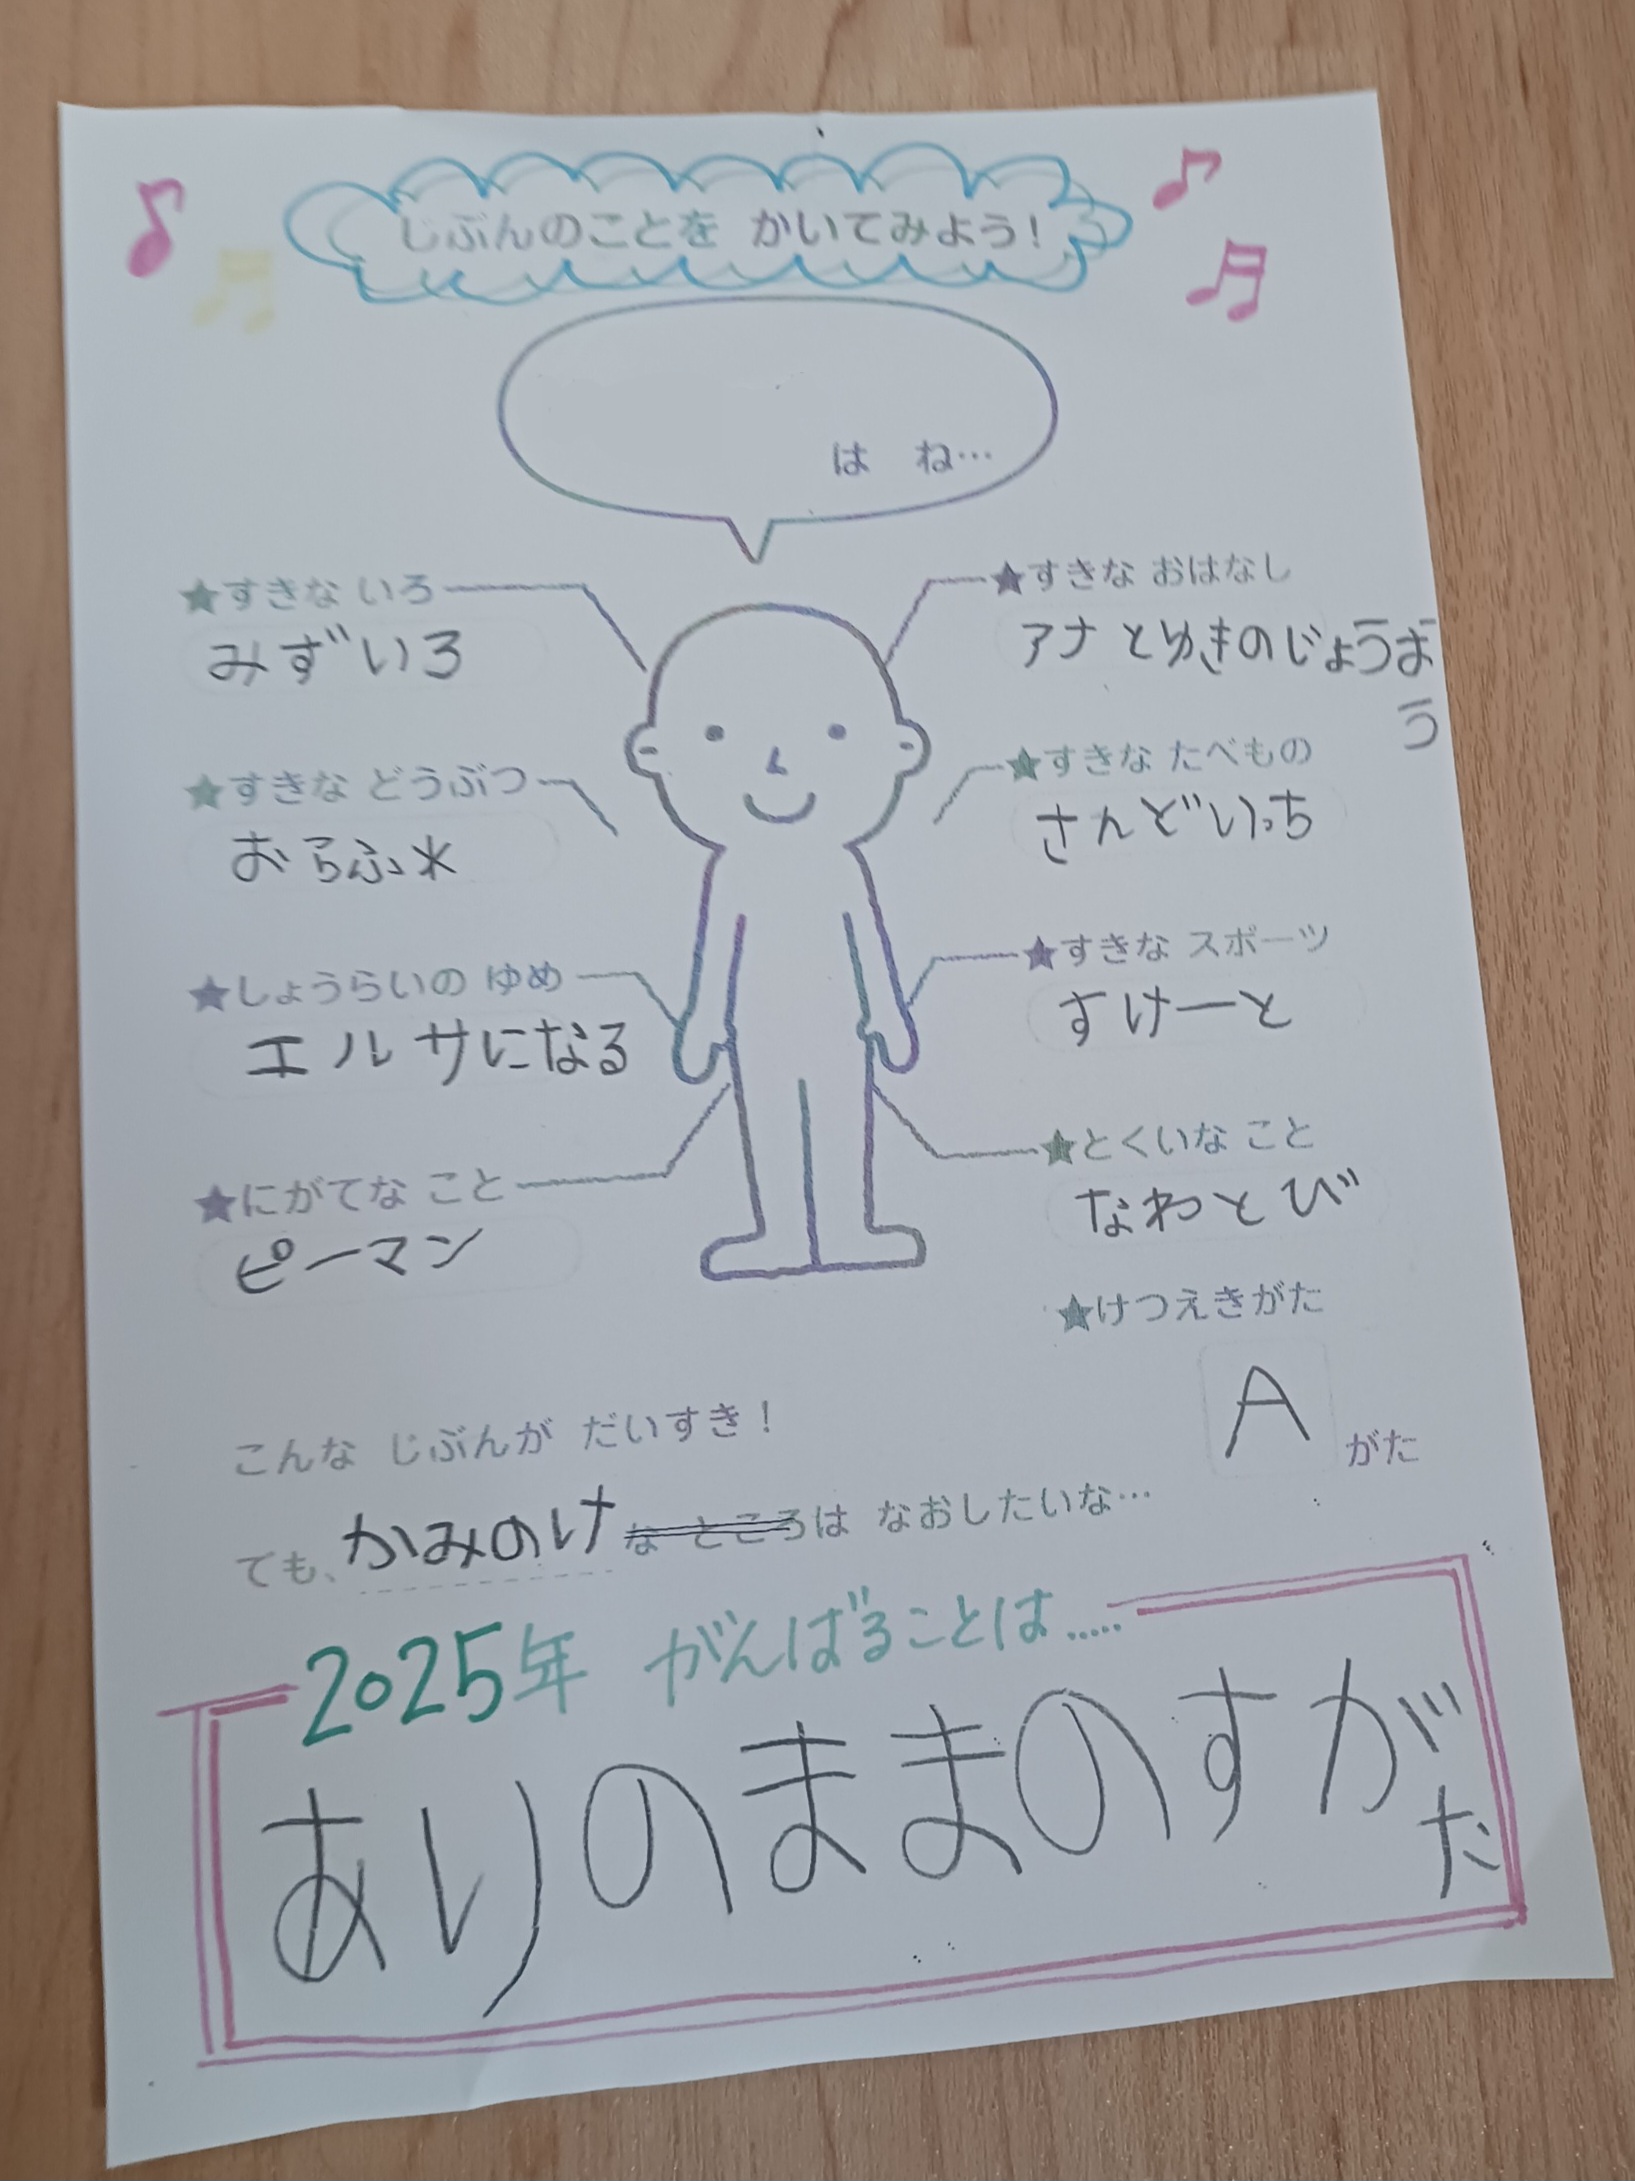 じぶんのことを かいてみよう!
は ね…
★すきな いろ
みずいろ
★すきな おはなし
アナとゆきのじょうおう
★すきな どうぶつ
おらふ水
★すきな たべもの
さんどいっち
★しょうらいの ゆめ
エルサになる
★すきな スポーツ
すけーと
★にがてな こと
ピーマン
★とくいな こと
なわとび
★けつえきがた
A がた
こんな じぶんが だいすき!
ても、かみのけ な ところは なおしたいな…
2025年 がんばることは.....
ありのままのすがた